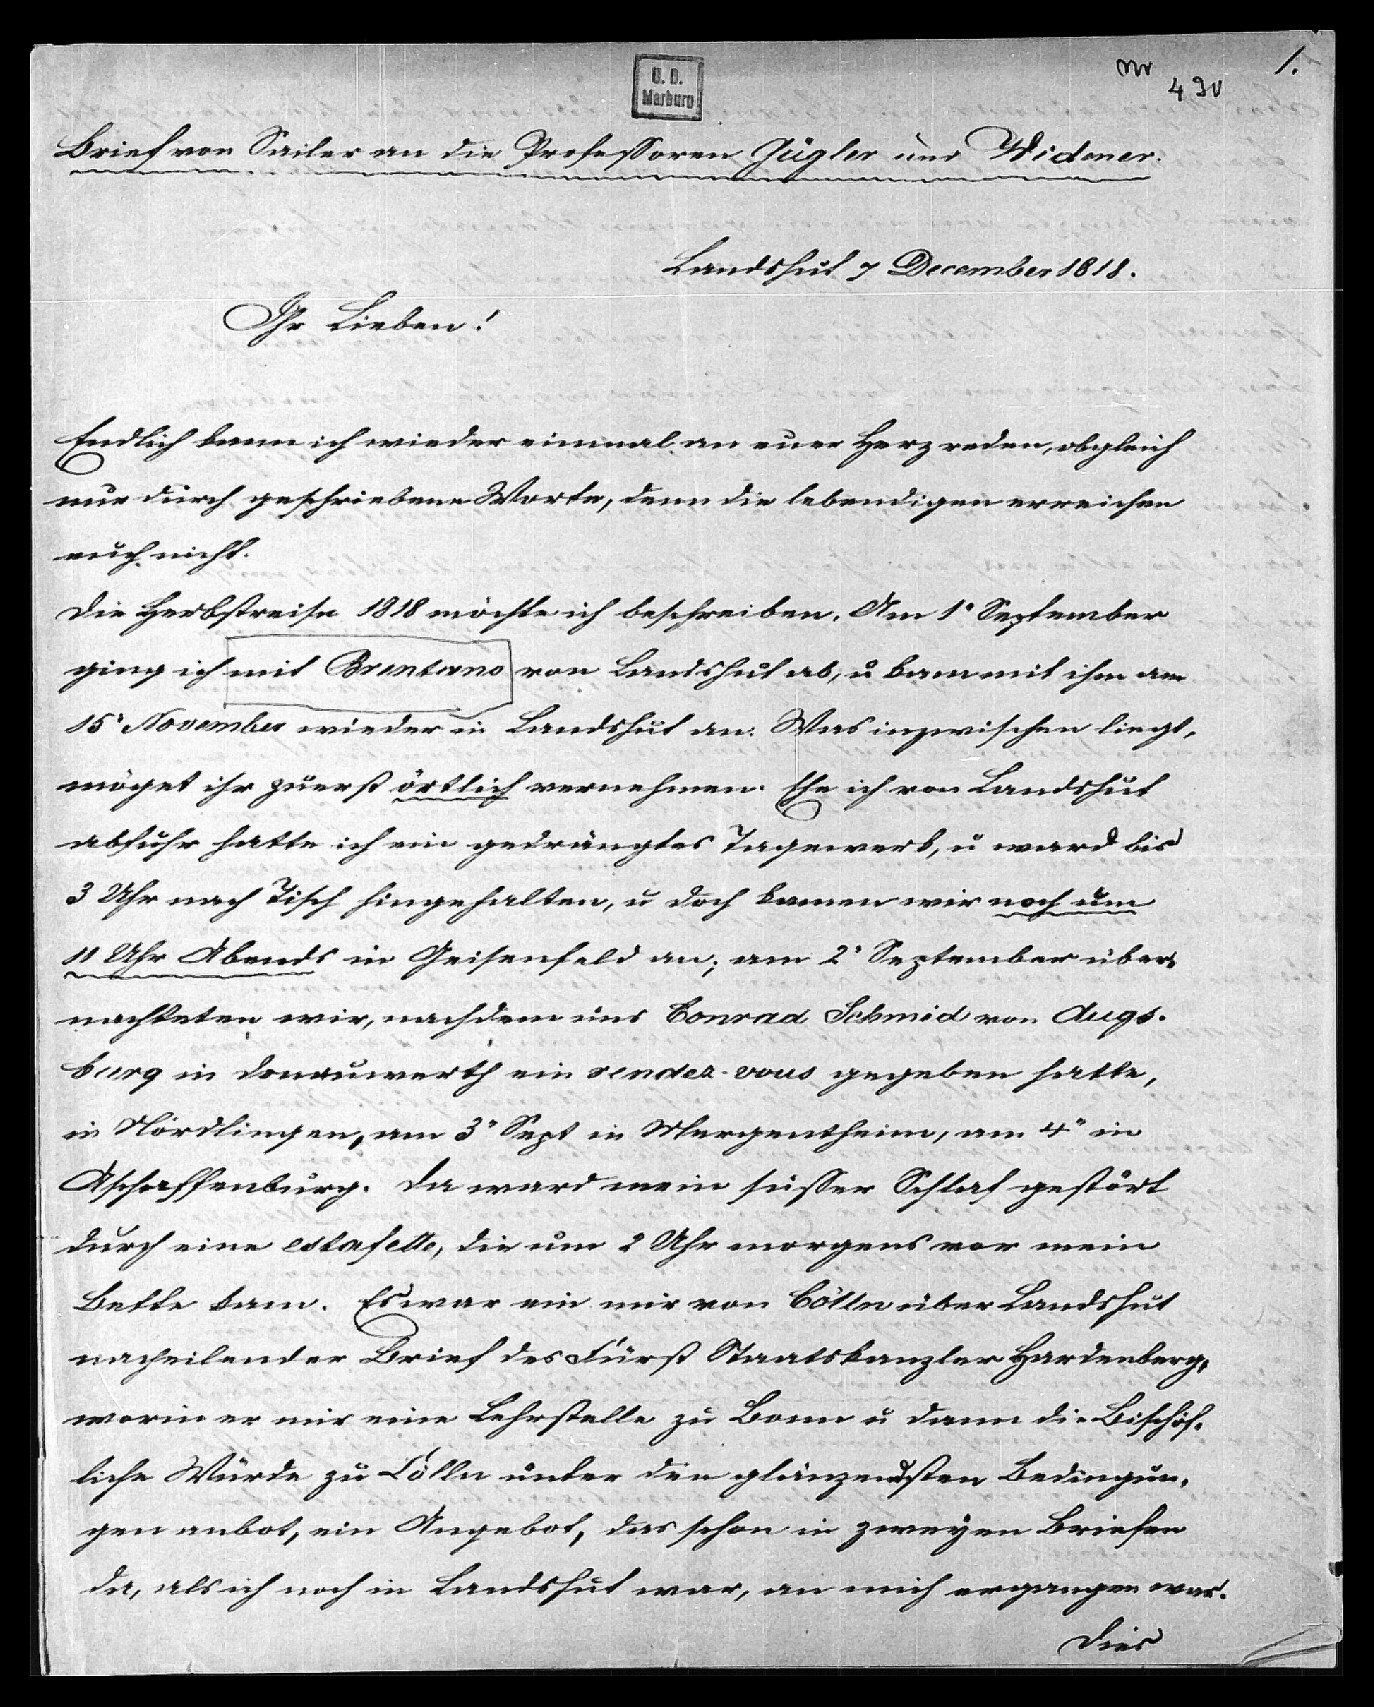 U. B.
Marburg
Nr 430
1.
Brief von Sailer an die Professoren Zügler und Widmer.
Landshut 7 December 1818.
Ihr Lieben!
Endlich kann ich wieder einmal an euer Herz reden, obgleich
nur durch geschriebene Worte, denn die lebendigen erreichen
euch nicht.
Die Herbstreise 1818 möchte ich beschreiben. Am 1" September
ging ich mit Brentano von Landshut ab, u kam mit ihm am
15' November wieder in Landshut an. Was inzwischen liegt,
möget ihr zuerst örtlich vernehmen. Ehe ich von Landshut
abfuhr hatte ich ein gedrängtes Tagewerk, u ward bis
3 Uhr nach Tisch hingehalten, u doch kamen wir noch um
11 Uhr Abends in Geisenfeld an; am 2' September über-
nachteten wir, nachdem uns Conrad Schmid von Augs-
burg in Donauwerth ein rendez-vous gegeben hatte,
in Nördlingen, am 3" Sept in Mergentheim, am 4" in
Aschaffenburg. Da ward mein süsser Schlaf gestört
durch eine estafette, die um 2 Uhr morgens vor mein
Bette kam. Es war ein mir von Cölln über Landshut
nacheilender Brief des Fürst Staatskanzler Hardenberg,
worin er mir eine Lehrstelle zu Bonn u dann die Bischöf-
liche Würde zu Cölln unter den glänzendsten Bedingun-
gen anbot, ein Angebot, das schon in zweyen Briefen
da, als ich noch in Landshut war, an mich ergangen war.
Dies